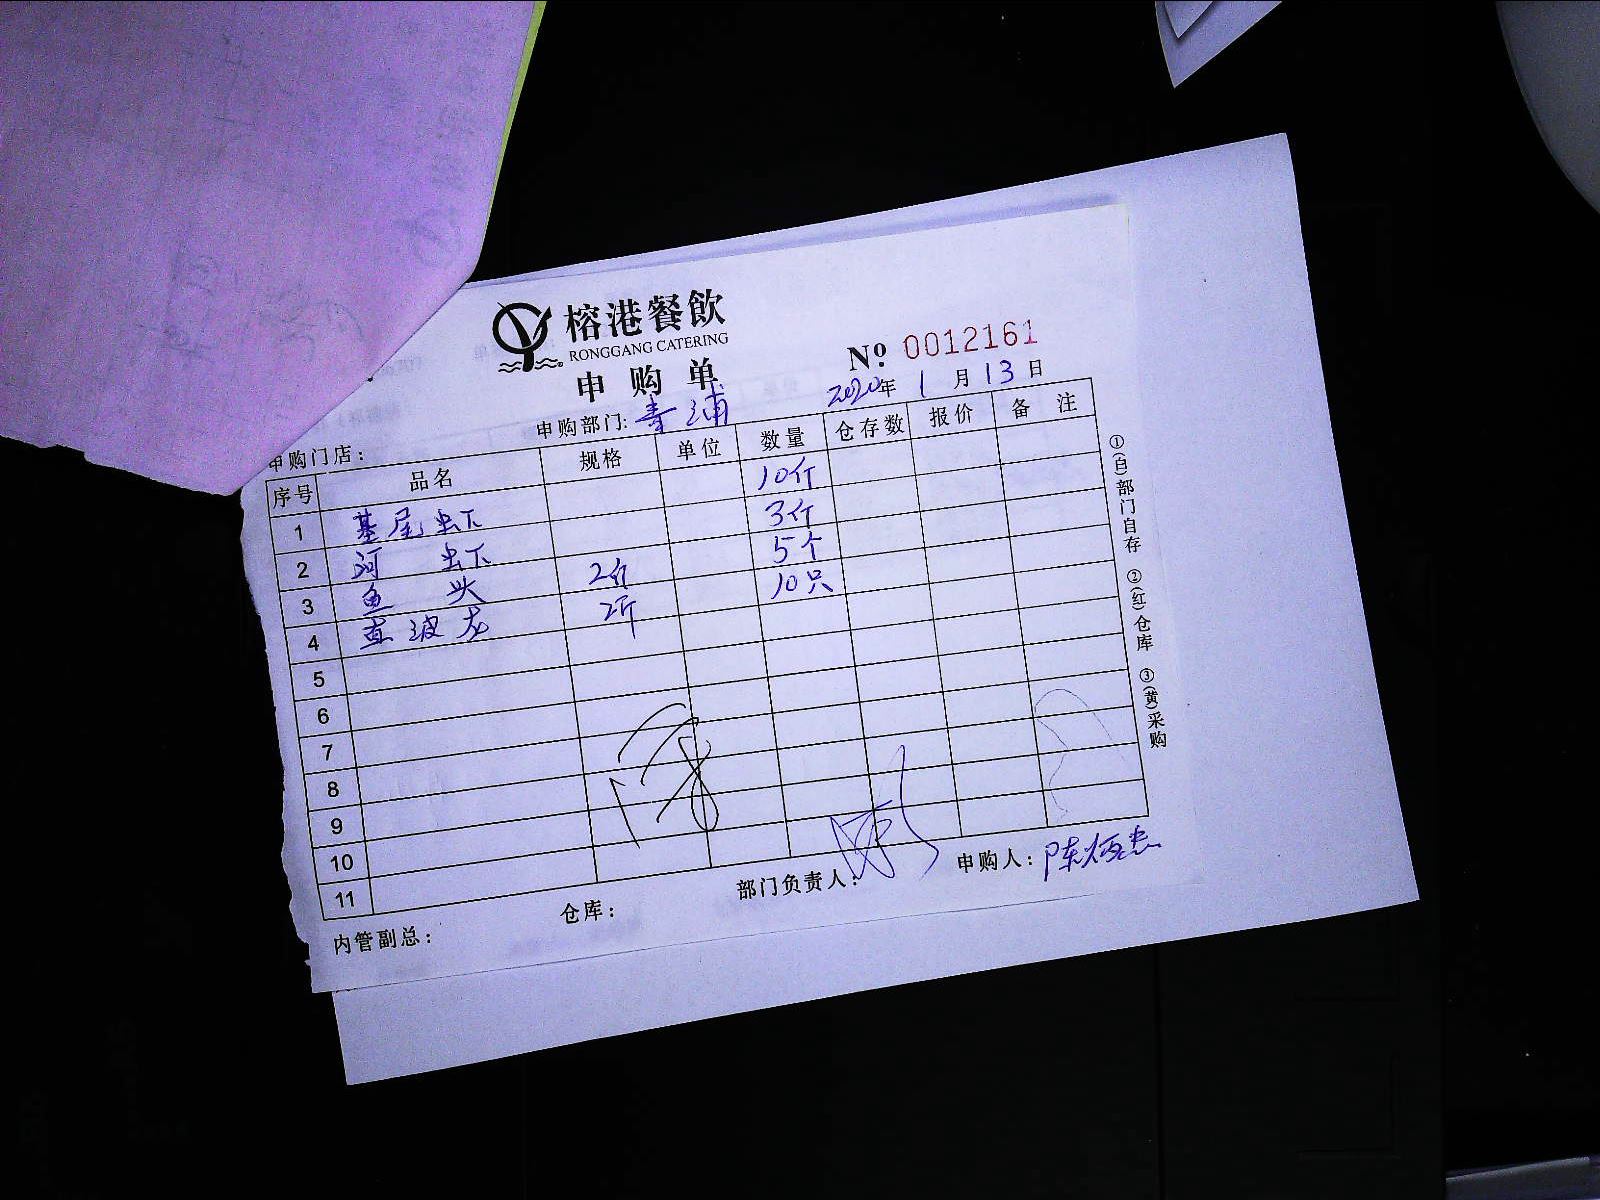 榕港餐飲
RONGGANG CATERING
申购单
№ 0012161
2020年 1月13日
申购门店：
申购部门: 青浦
序号 品名 规格 单位 数量 仓存数 报价 备注
1 基尾虾 10斤
2 河虾 3斤
3 鱼头 2斤 5个
4 直波龙 2斤 10只
5
6
7
8
9
10
11
内管副总：
仓库：
部门负责人：
申购人：陈炳
①(白)部门自存 ②(红)仓库 ③(黄)采购